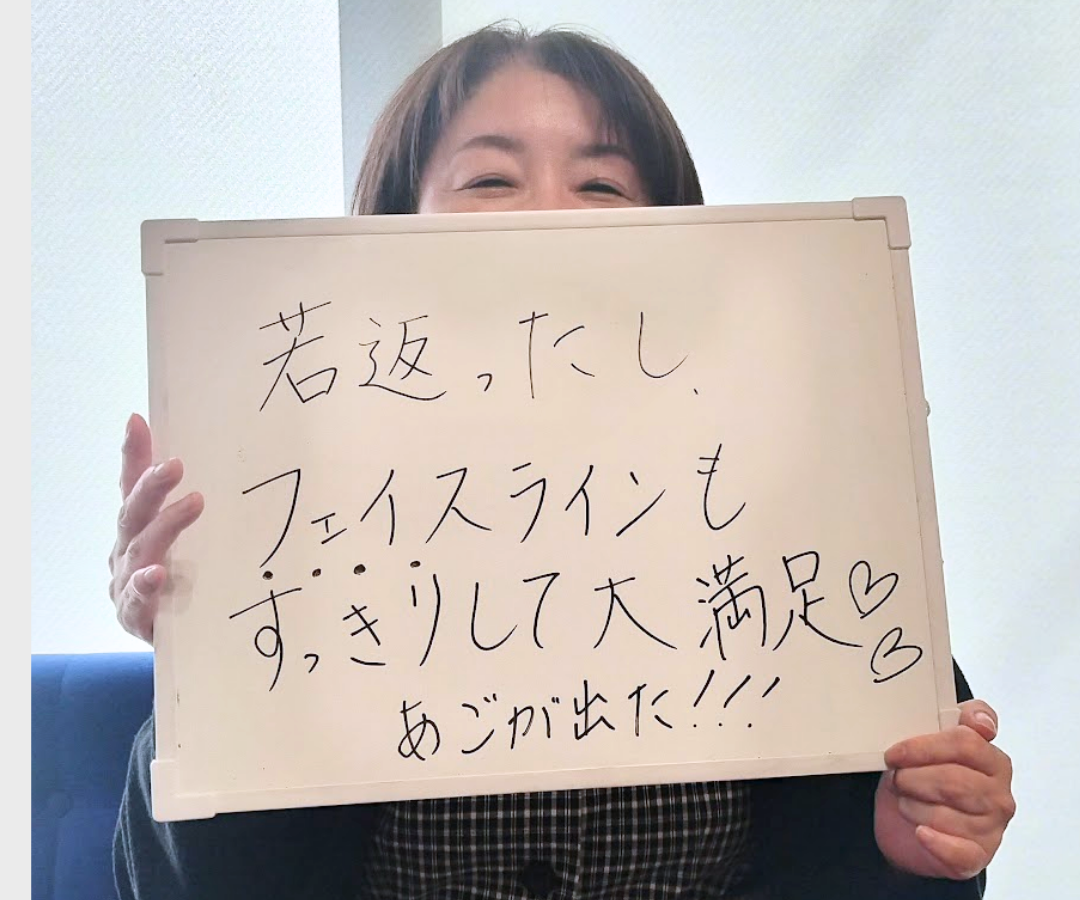 若返ったし、
フェイスラインも
すっきりして大満足♡♡
あごが出た!!!